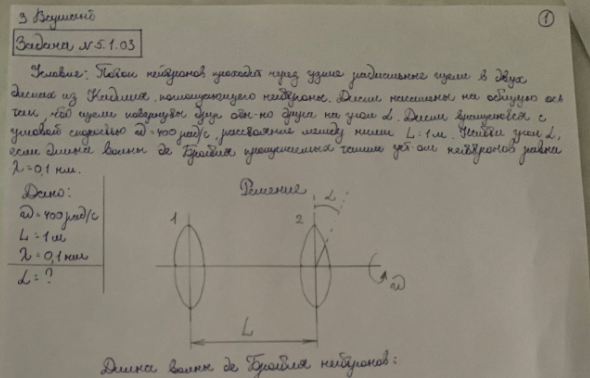 3 Вариант
1
Задача № 5.1.03
Условие: Поток нейтронов проходит через узкие радиальные щели в двух
дисках из Кадмия, поглощающего нейтроны. Диски насажены на общую ось
так, что щели повернуты друг отн-но друга на угол α. Диски вращаются с
угловой скоростью ω = 400 рад/с, расстояние между ними L = 1 м. Найти угол α,
если длина волны де Бройля пропускаемых таким уст-ом нейтронов равна
λ = 0,1 нм.
Дано:
ω = 400 рад/с
L = 1 м
λ = 0,1 нм
α = ?
Решение
1
2
α
ω
L
Длина волны де Бройля нейтронов: